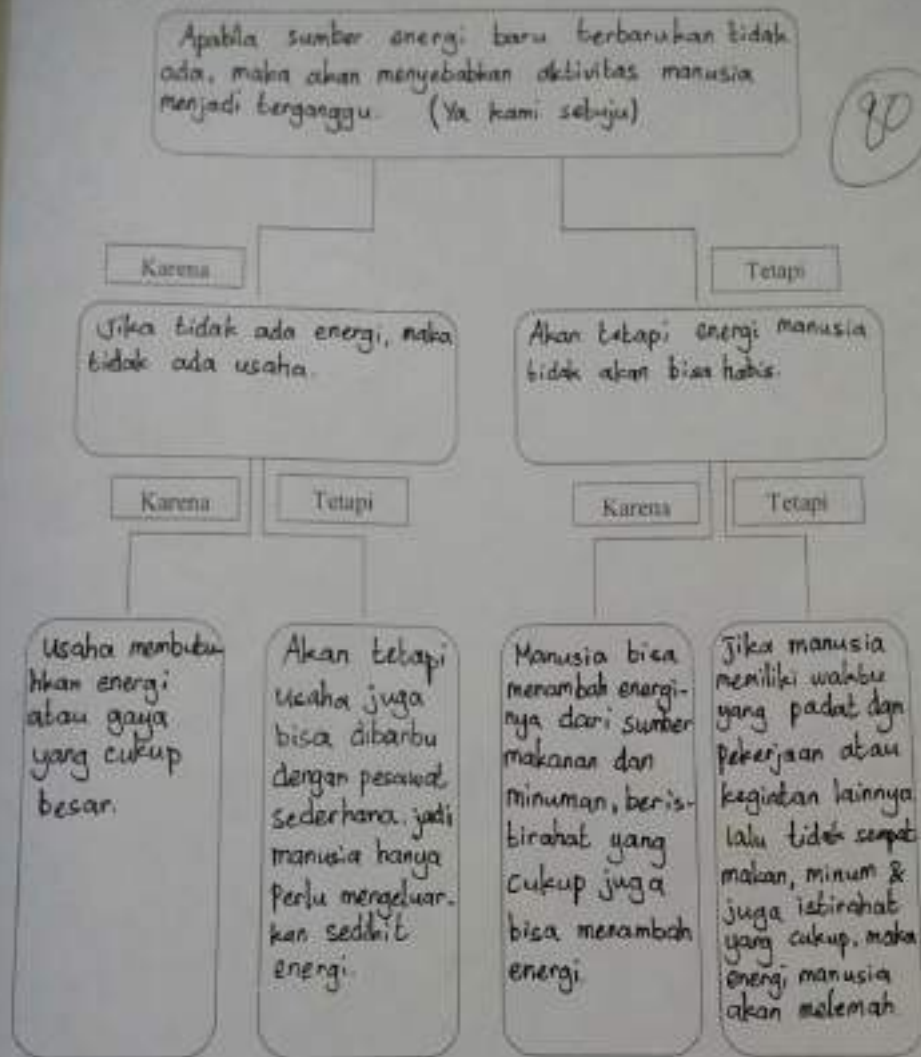 Apabila sumber energi baru terbarukan tidak
ada, maka akan menyebabkan aktivitas manusia
menjadi terganggu. (Ya kami setuju)
Karena
Tetapi
Jika tidak ada energi, maka
tidak ada usaha.
Akan tetapi energi manusia
tidak akan bisa habis.
Karena
Tetapi
Karena
Tetapi
Usaha membutu
hkan energi
atau gaya
yang cukup
besar.
Akan tetapi
usaha juga
bisa dibantu
dengan pesawat
sederhana. jadi
manusia hanya
Perlu mengeluar-
kan sedikit
energi.
Manusia bisa
menambah energi-
nya dari sumber
makanan dan
minuman, beris-
tirahat yang
cukup juga
bisa menambah
energi.
Jika manusia
memiliki waktu
yang padat dgn
Pekerjaan atau
kegiatan lainnya
lalu tidak sempat
makan, minum &
juga istirahat
yang cukup, maka
energi manusia
akan melemah